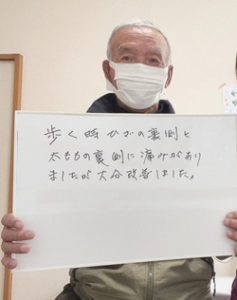 歩く時ひざの裏側と
太ももの裏側に痛みがあり
ましたが大分改善しました。